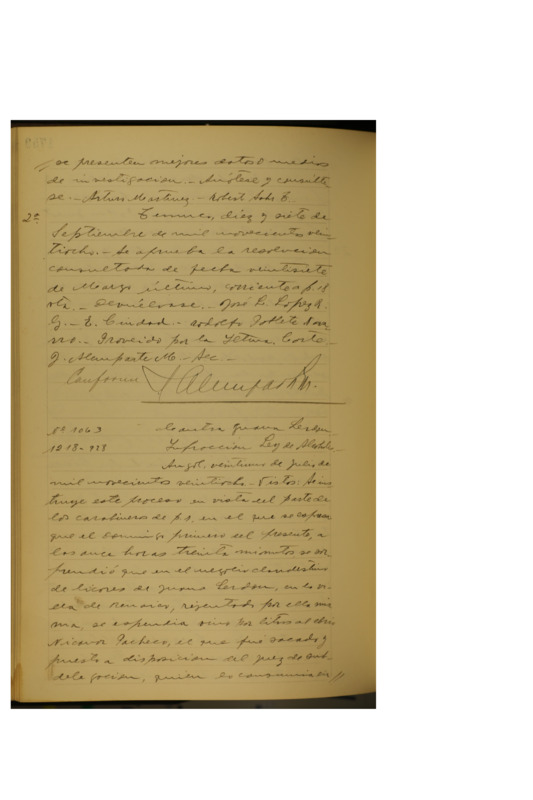 se presenten mejores datos o medios
de investigación. - Anótese y consúlte
se. - Arturo Martinez. - Robert Soto
2ª Temuco, diez y siete de
Septiembre de mil novecientos vein
tiocho. - Se aprueba la resolucion
consultada de fecha veintisiete
de Marzo último, corriente a f. 8
vta. - Devuélvase. - José L. Lopez R.
G. - E. Ciudad - Rodolfo
Proveido por la Iltma. Corte. -
J. Alamparte M. - Sec -
Conforme
Nº 1063 Contra Juana
1218-928 Infraccion Ley de Alcoholes
Angol, veintiuno de Julio de
mil novecientos veintiocho. - Vistos: Se ins
truye este proceso en vista del parte de
los carabineros de f. 1, en el que se expone
que el Domingo primero del presente, a
las once horas treinta minutos se sor
prendió que en el negocio clandestino
de licores de Juana en la
de Renaico, rejentado por ella mis
ma, se espendia vino por litros al
Nicanor Pacheco, el que fué sacado y
puesto a disposicion del juez de sub-
delegacion, quien lo